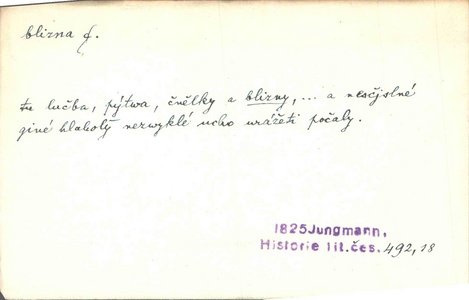 blizna f.
tu lučba, pýtwa, čnělky a blizny, ... a nesčjslné
giné hlaholy nezwyklé ucho urážeti počaly.
1825 Jungmann,
Historie lit.čes. 492,18